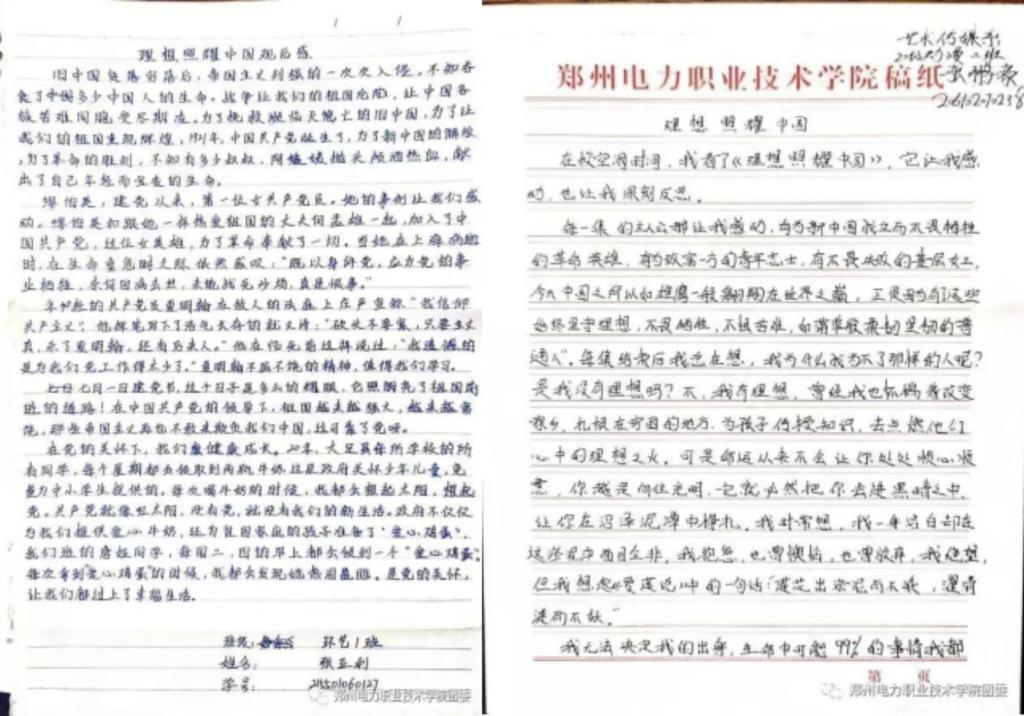 理想照耀中国观后感
旧中国贫穷落后，帝国主义列强的一次次入侵，不知吞
食了中国多少中国人的生命。战争让我们的祖国危险，让中国各
族苦难同胞受尽欺凌。为了挽救濒临灭绝亡的旧中国，为了让
我们的祖国重现辉煌，1921年，中国共产党诞生了，为了新中国的解放
，为了革命的胜利，不知有多少叔叔、阿姨抛头颅洒热血，献
出了自己年轻而宝贵的生命。
缪伯英，建党以来，第一位女共产党员。她的事例让我们感
动。缪伯英和跟她一样热爱祖国的丈夫何孟雄一起，加入了中
国共产党，这位女英雄，为了革命奉献了一切。当她在上海病
时，在生命垂危时之际依然感叹："既以身许党，应为党的事
业牺牲，奈何因病去世，未能战死沙场，真是恨事。"
年轻的共产党员夏明翰在敌人的法庭上庄严宣称"我信仰
共产主义"；他挥笔写下了浩气长存的就义诗："砍头不要紧，只要主义
真，杀了夏明翰，还有后来人。"他在临死前这样说过，"我遗憾的
是为我们党工作得太少了。"夏明翰不屈不饶的精神，值得我们学习。
七月一日建党节，这个日子是多么的耀眼，它照亮了祖国前
进的道路！在中国共产党的领导下，祖国越来越强大，越来越富
饶，那些帝国主义再也不敢来欺负我们中国，这可靠了党呀。
在党的关怀下，我们健康成长。
有同学，每个星期都会领取到两瓶牛奶这是政府关怀少年儿童，免
费为中小学生提供的。每次喝牛奶的时候，我都会想起太阳，想起
党。共产党就像红太阳，没有党，就没有我们的新生活。政府不仅仅
为我们提供爱心牛奶，还为贫困家庭的孩子准备了"爱心鸡蛋"，
我们班的唐同学，每周二、四的早上都会领到一个"爱心鸡蛋"。
每次拿到"爱心鸡蛋"的时候，我都会发现她热泪盈眶。是党的关怀，
让我们都过上了幸福生活。
班级： 环艺1班
姓名： 张亚利
学号：
郑州电力职业技术学院团委
艺术传媒系
郑州电力职业技术学院稿纸
理想照耀中国
在校空闲时间，我看了《理想照耀中国》，它让我感
动，也让我深刻反思。
每一集的主人公都让我感动，有为新中国成立而不畏牺牲
的革命英雄，有为致富一方的青年志士，有不畏失败的基层女工，
今天中国之所以如雄鹰一般翱翔在世界之巅，正是因为有这些
始终坚守理想，不畏牺牲，不惧苦难，如蒲草般柔韧坚韧的"普
通人"。每集结束后我也在想，我为什么成为不了那样的人呢？
是我没有理想吗？不，我有理想，曾经我也怀揣着改变
家乡，扎根在穷困的地方，为孩子传授知识，去点燃他们
心中的理想之火。可是命运从来不会让你处处顺心顺
意，你越是向往光明，它就必然把你丢进黑暗之中，
让你在沼泽泥潭中挣扎。我时常想，我一身洁白却在
这些泥中面目全非。我抱怨，也曾懊恼，也曾放弃，我绝望，
但我想起《爱莲说》中的一句话："莲花出淤泥而不染，濯清
涟而不妖。"
我无法决定我的出身，生命中可能99%的事情我都
第 页
郑州电力职业技术学院团委